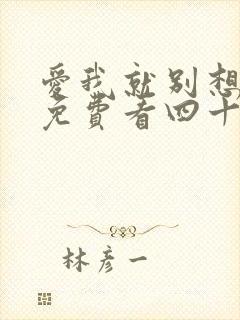 愛我就別想
免費看四十
林彥一